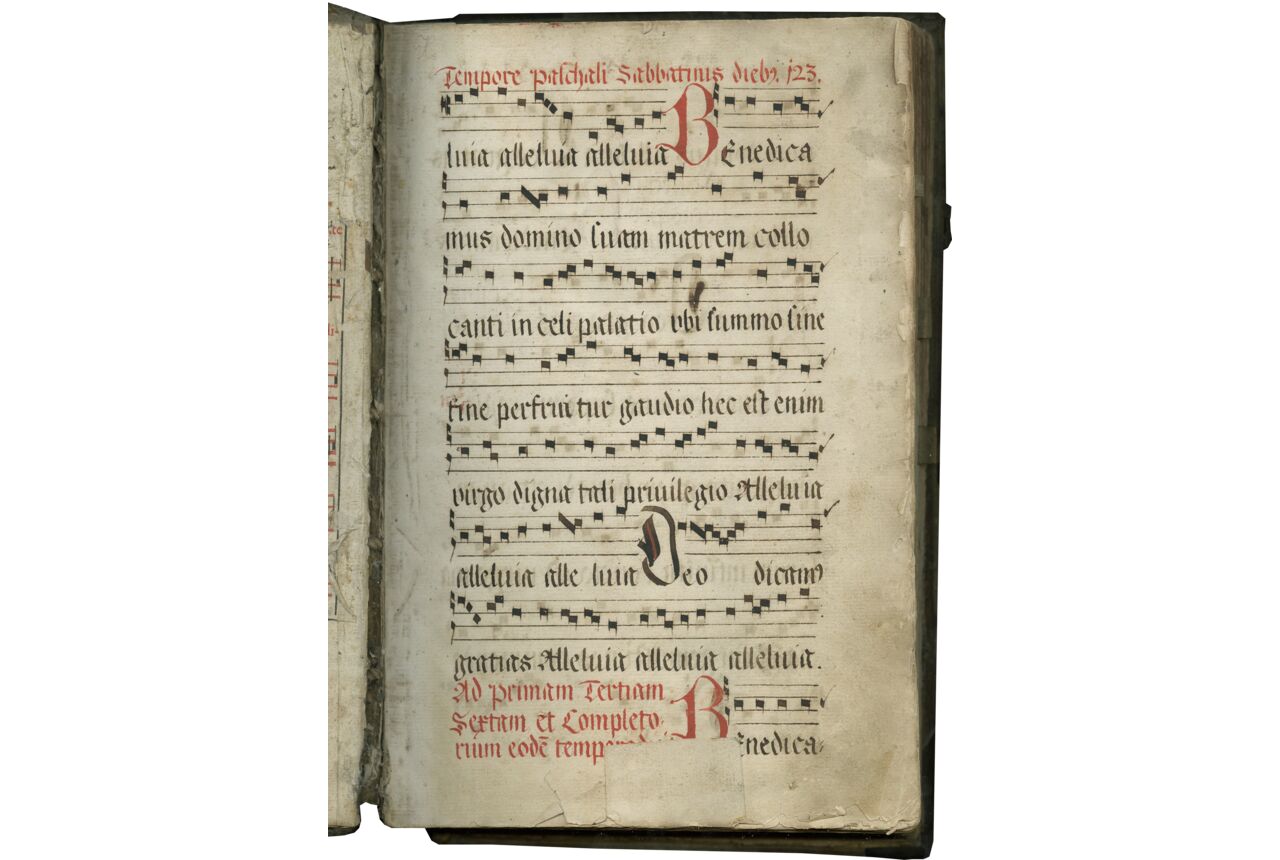 Tempore Paschali Sabbatinis dieb9. 123.
luia alleluia alleluia BEnedica
mus domino suam matrem collo
canti in celi palatio vbi summo sine
fine perfrui tur gaudio hec est enim
virgo digna tali priuilegio Alleluia
alleluia alle luia Deo dicam9
gratias Alleluia alleluia alleluia.
Ad Primam Tertiam
Sextam et Completo-
rium eodē
BEnedica-